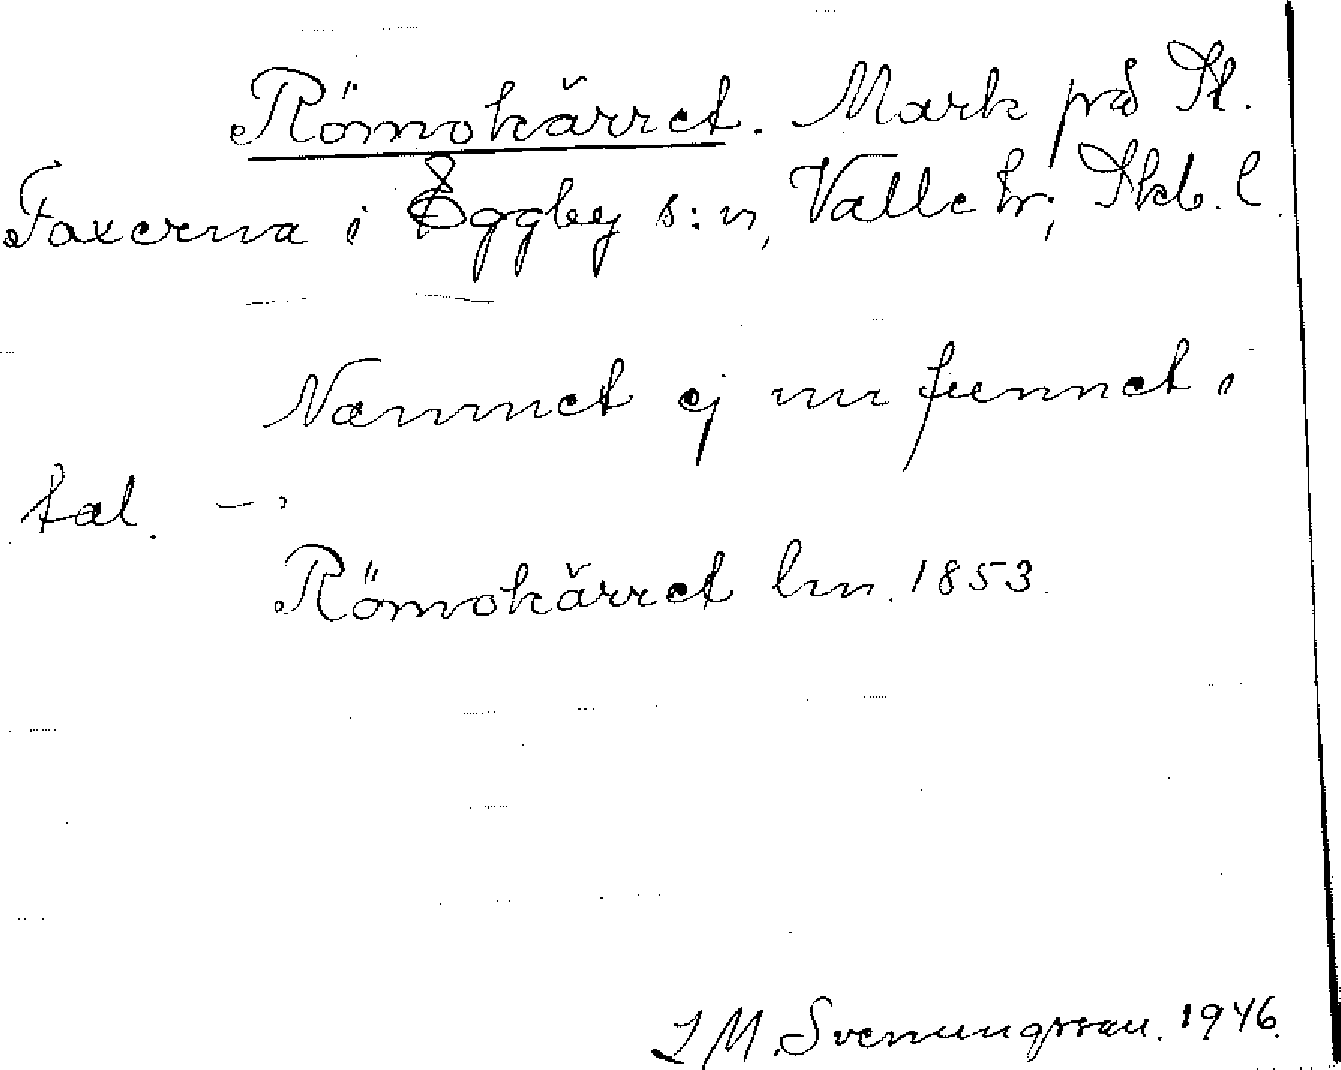 Römokärret. Mark på St.
Faxerna i Eggby s:n, Valle hr, Skb. l.
Namnet ej nu funnet i
tal. –
Römokärret lm. 1853.
J M. Svenungsson. 1946.